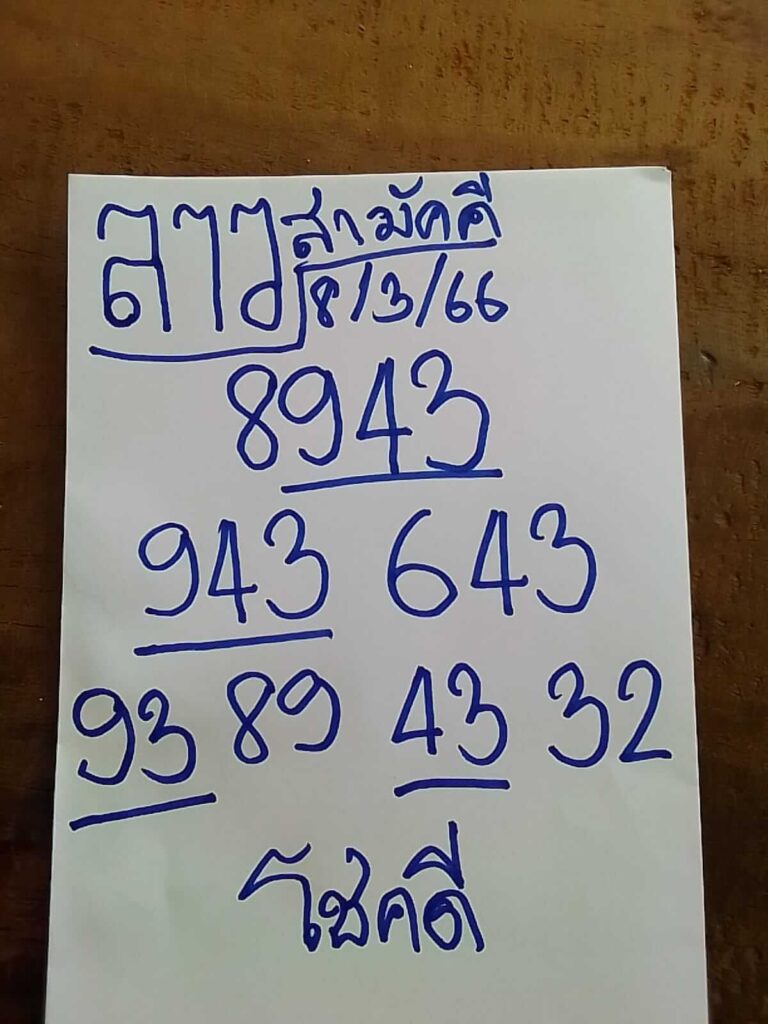 ลาว สามัคคี
8/3/66
8943
943 643
93 89 43 32
โชคดี